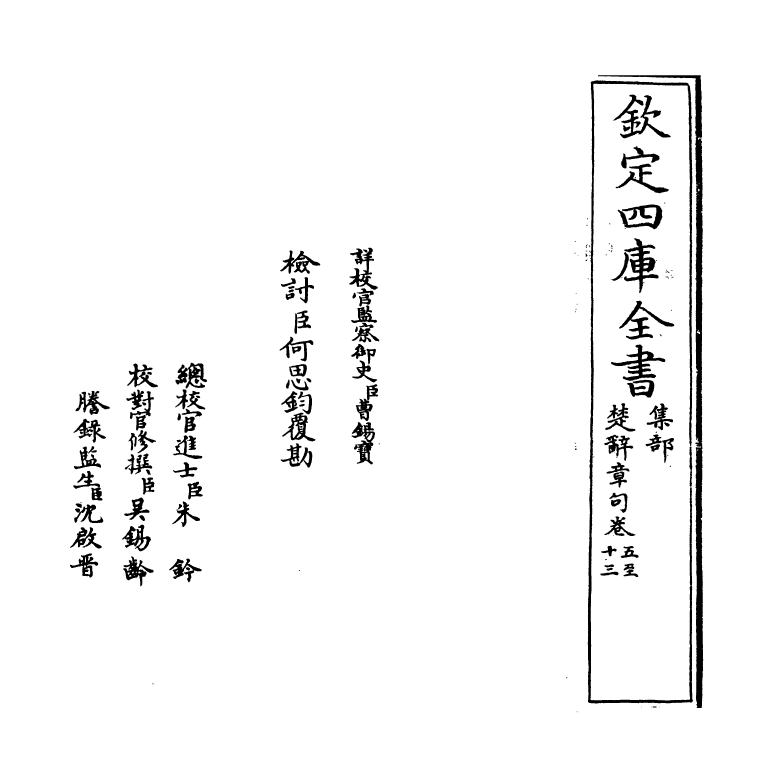 欽定四庫全書
集部
楚辭章句卷五至十三
詳校官監察御史臣曹錫寶
檢討臣何思鈞覆勘
總校官進士臣朱鈐
校對官修撰臣吳錫齡
謄錄監生臣沈啟晋